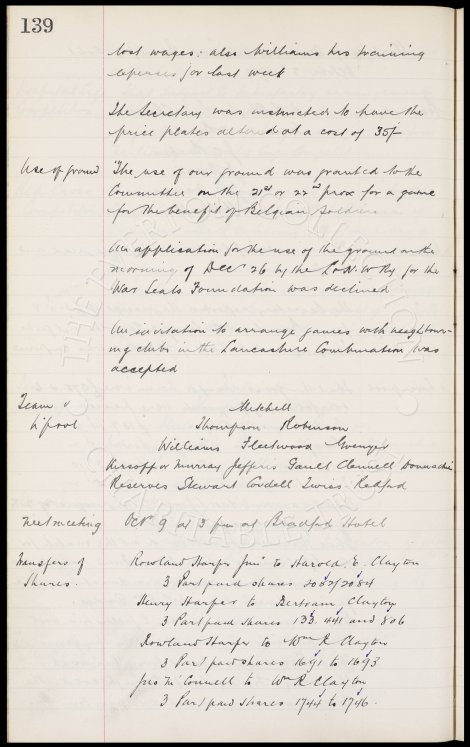 139
lost wages: also Williams his training
expenses for last week
The Secretary was instructed to have the
price plates altered at a cost of 35/-
Use of ground
The use of our ground was granted to the
Committee on the 21st or 22nd prox for a game
for the benefit of Belgian Soldiers
An application for the use of the ground on the
morning of Dec 26 by the L & N. W Ry for the
War Seals Foundation was declined
An invitation to arrange games with neighbour-
ing clubs in the Lancashire Combination was
accepted
Team v
L'pool
Mitchell
Thompson Robinson
Williams Fleetwood Grenyer
Kirsopp or Murray Jefferis Gault Clennell Donnachie
Reserves Stewart Cordell Swiss Redford
Next meeting
Octr 9 at 3 pm at Bradford Hotel
Transfers of
Shares.
Rowland Harper Junr to Harold. E. Clayton
3 Part paid shares 2082/2084
Henry Harper to Bertram Clayton
3 Part paid shares 133. 441 and 806
Rowland Harper to Wm R Clayton
3 Part paid shares 1691 to 1693
Jno Mc Connell to Wm R Clayton
3 Part paid shares 1744 to 1746.